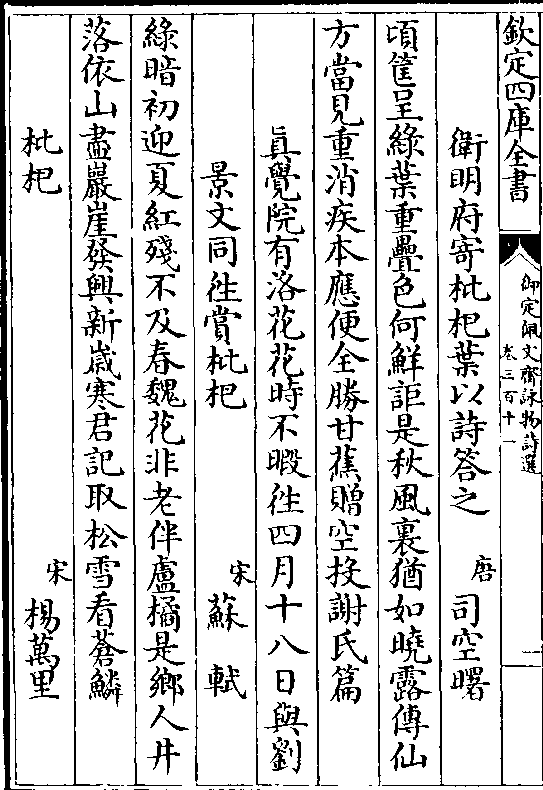 欽定四庫全書
御定佩文齋詠物詩選
卷三百十一
一
衛明府寄枇杷葉以詩答之 唐 司空曙
頃筐呈綠葉重疊色何鮮詎是秋風裏猶如曉露傳仙
方當見重消疾本應便全勝甘蕉贈空投謝氏篇
真覺院有洛花花時不暇徃四月十八日與劉
景文同徃賞枇杷 宋 蘇軾
綠暗初迎夏紅殘不及春魏花非老伴盧橘是鄉人井
落依山盡巖崖發興新歲寒君記取松雪看蒼鱗
枇杷 宋 楊萬里